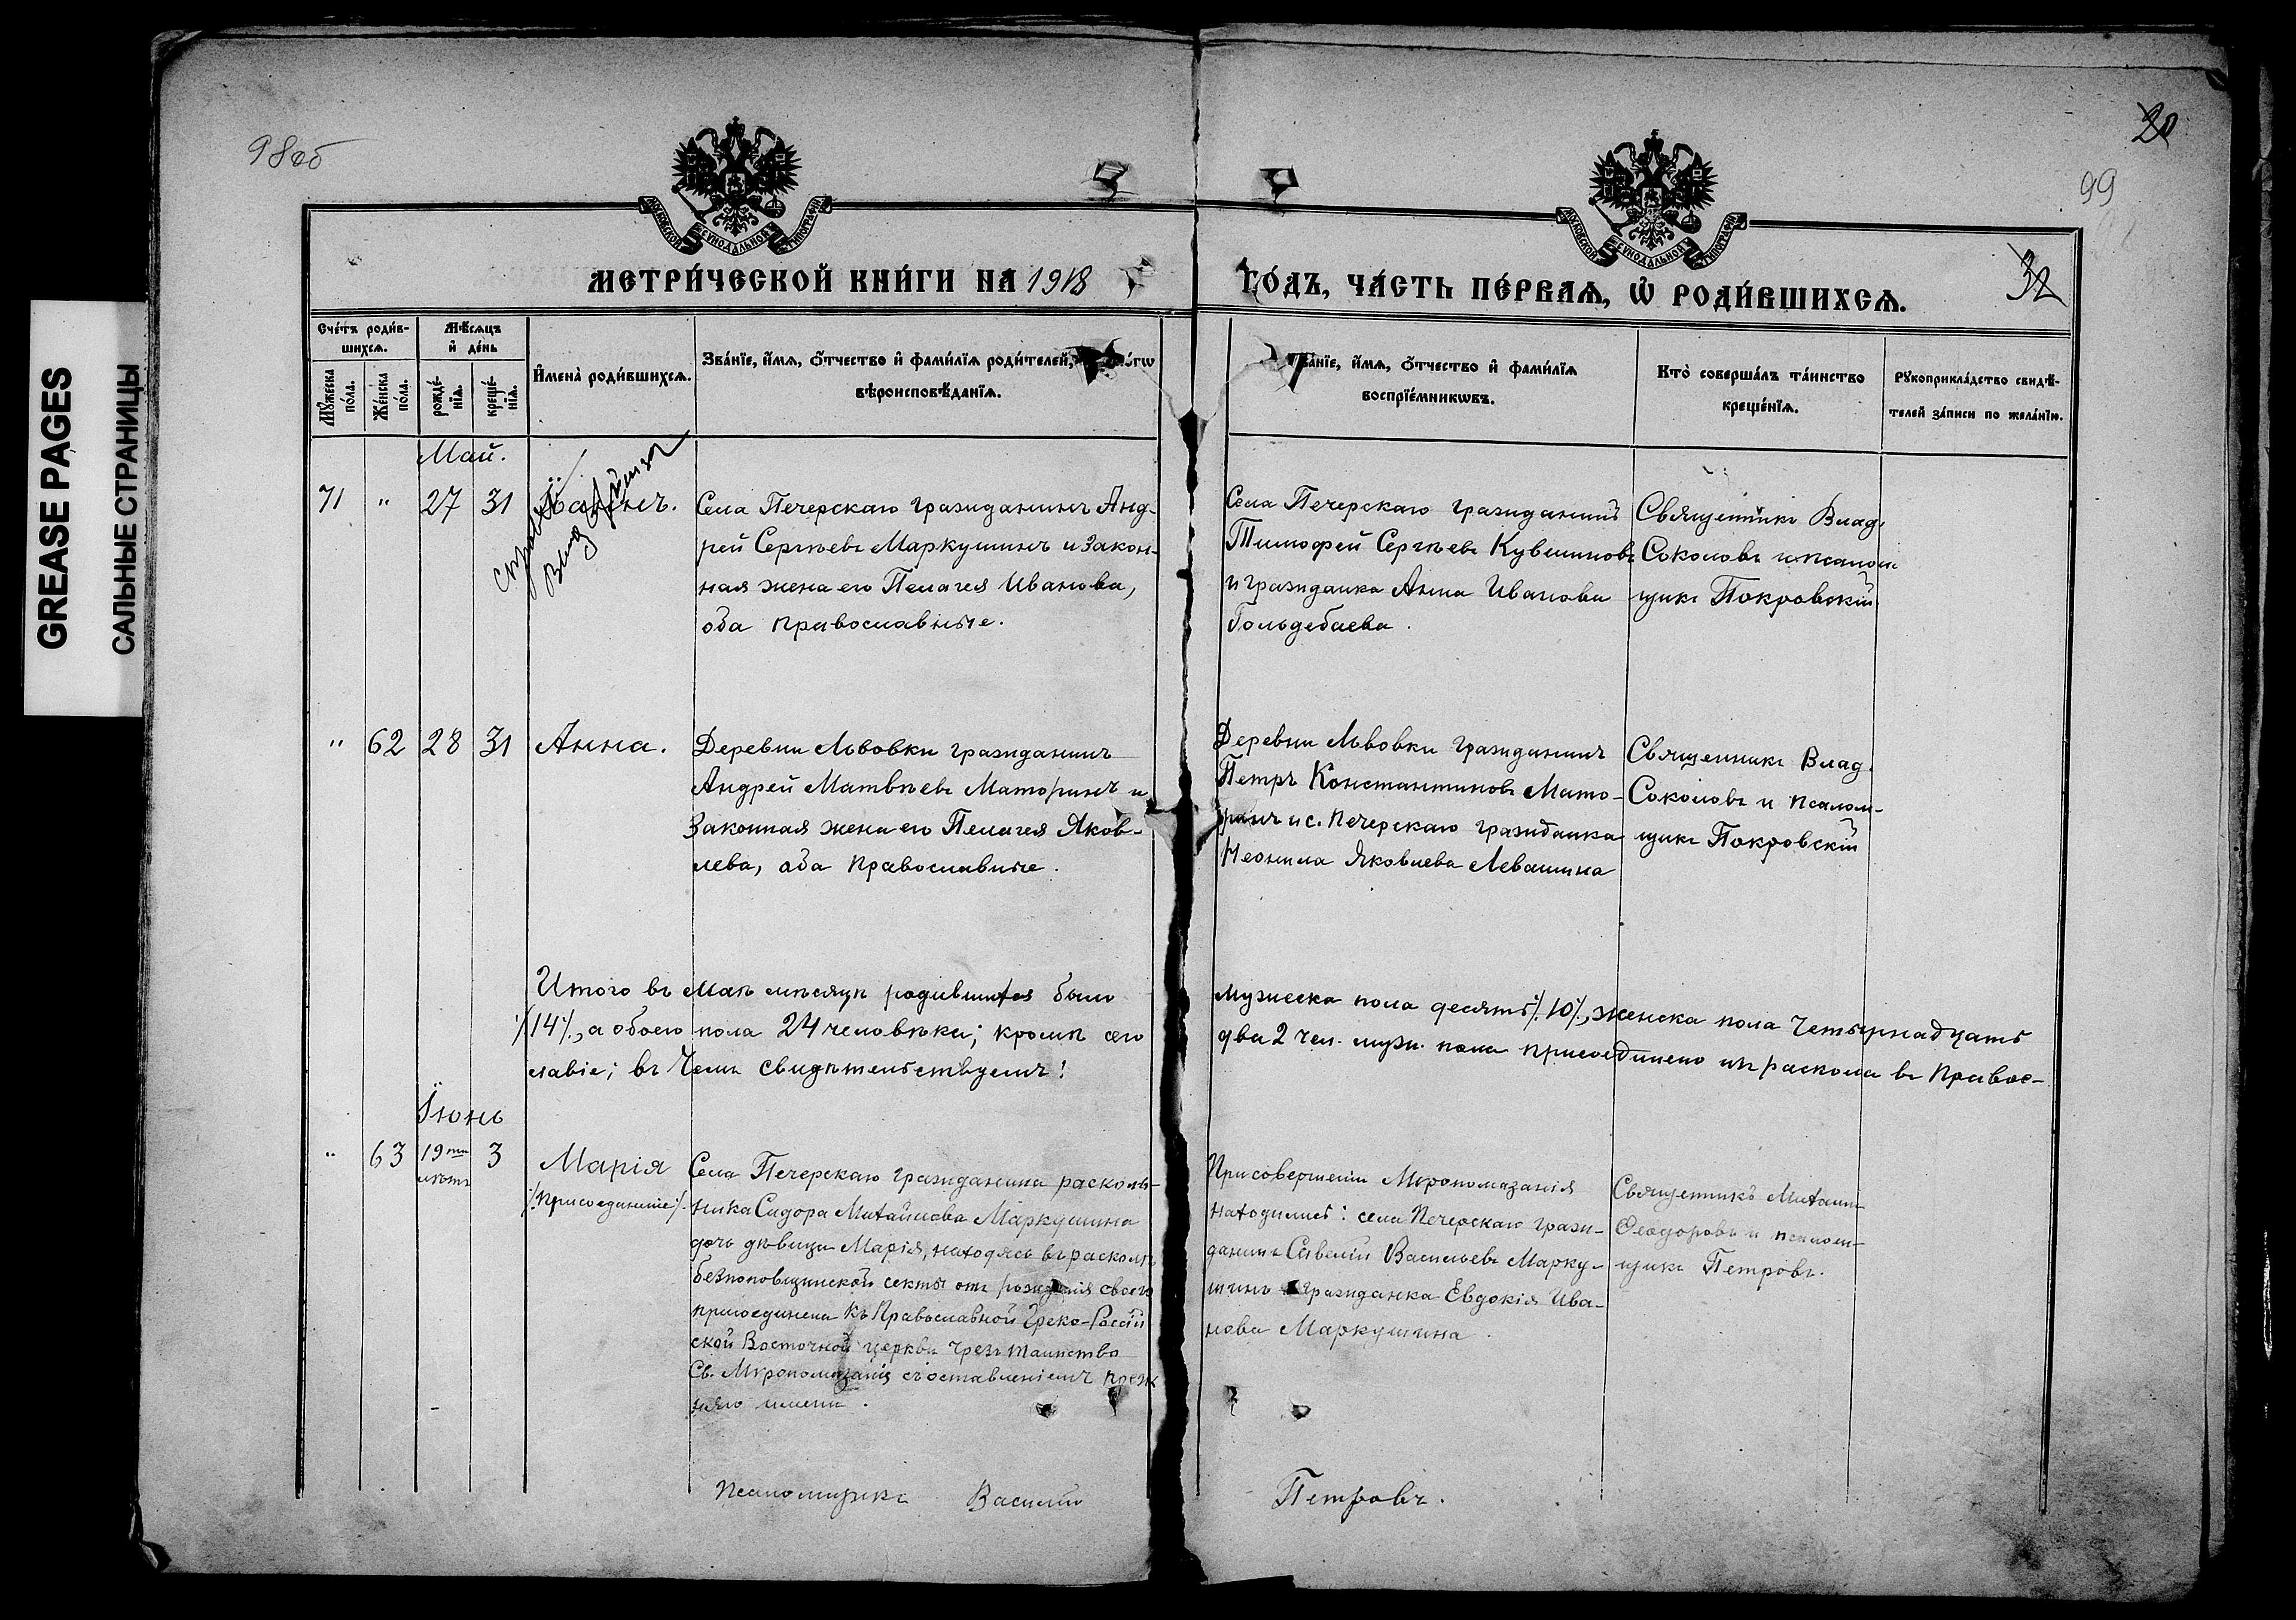 GREASE PAGES
САЛЬНЫЕ СТРАНИЦЫ
98об
20
99
32
МОСКОВСКОЙ СѴНОДАЛЬНОЙ ТИПОГРАФІИ
МОСКОВСКОЙ СѴНОДАЛЬНОЙ ТИПОГРАФІИ
МЕТРИ́ЧЕСКОЙ КНИ́ГИ НА 1918
ГО́ДЪ, ЧА́СТЬ ПЕ́РВАѦ, Ѡ҆ РОДИ́ВШИХСѦ.
Сче́тъ роди́в-
шихсѧ.
Мѣ́сяцъ
и҆ де́нь
Мꙋ́жеска по́ла.
Же́нска по́ла.
рожде́-
нїѧ.
креще́-
нїѧ.
И҆мена̀ роди́вшихсѧ.
Зва́нїе, и҆́мѧ, ѻ҆́тчество и҆ фами́лїѧ роди́телей,
вѣроисповѣ́данїѧ.
Зва́нїе, и҆́мѧ, ѻ҆́тчество и҆ фами́лїѧ
воспрїе́мникѡвъ.
Кто̀ соверша́лъ та́инство
креще́нїѧ.
Рꙋкоприкла́дство свидѣ́-
телей за́писи по жела́нїю.
Май.
71 " 27 31
Села Печерскаго гражданинъ Анд-
рей Сергѣевъ Маркушинъ и закон-
ная жена его Пелагея Иванова,
оба православные.
Села Печерскаго гражданинъ
Тимофей Сергѣевъ Кувшиновъ
и гражданка Анна Иванова
Гольдебаева.
Священникъ Влад.
Соколовъ и псалом-
щикъ Покровскій.
" 62 28 31 Анна.
Деревни Львовки гражданинъ
Андрей Матвѣевъ Маторинъ и
законная жена его Пелагея Яков-
лева, оба православные.
Деревни Львовки гражданинъ
Петръ Константиновъ Мато-
ринъ и с. Печерскаго гражданка
Неонила Яковлева Левашина
Священникъ Влад.
Соколовъ и псалом-
щикъ Покровскій
Итого въ маѣ мѣсяцѣ родившихся было мужеска пола десять /.10/., женска пола четырнадцать
/.14/., а обоего пола 24 человѣка; кромѣ сего два 2 чел. муж. пола присоединено изъ раскола въ правос-
лавіе; въ чемъ свидѣтельствуемъ:
Іюнь
" 63 19ти лѣтъ 3 Марія
/.присоединеніе/.
Села Печерскаго гражданина расколь-
ника Сидора Михайлова Маркушина
дочь дѣвица Марія, находясь въ расколѣ
безпоповщинской секты отъ рожденія своего
присоединена къ Православной Греко-Россій
ской Восточной церкви чрезъ таинство
Св. Мѵропомазанія съ оставленіемъ преж
няго имени.
При совершеніи Мѵропомазанія
находились: села Печерскаго граж-
данинъ Савелій Васильевъ Марку-
шинъ и гражданка Евдокія Ива-
нова Маркушина.
Священникъ Михаилъ
Ѳеодоровъ и псалом-
щикъ Петровъ.
Псаломщикъ Василій Петровъ.